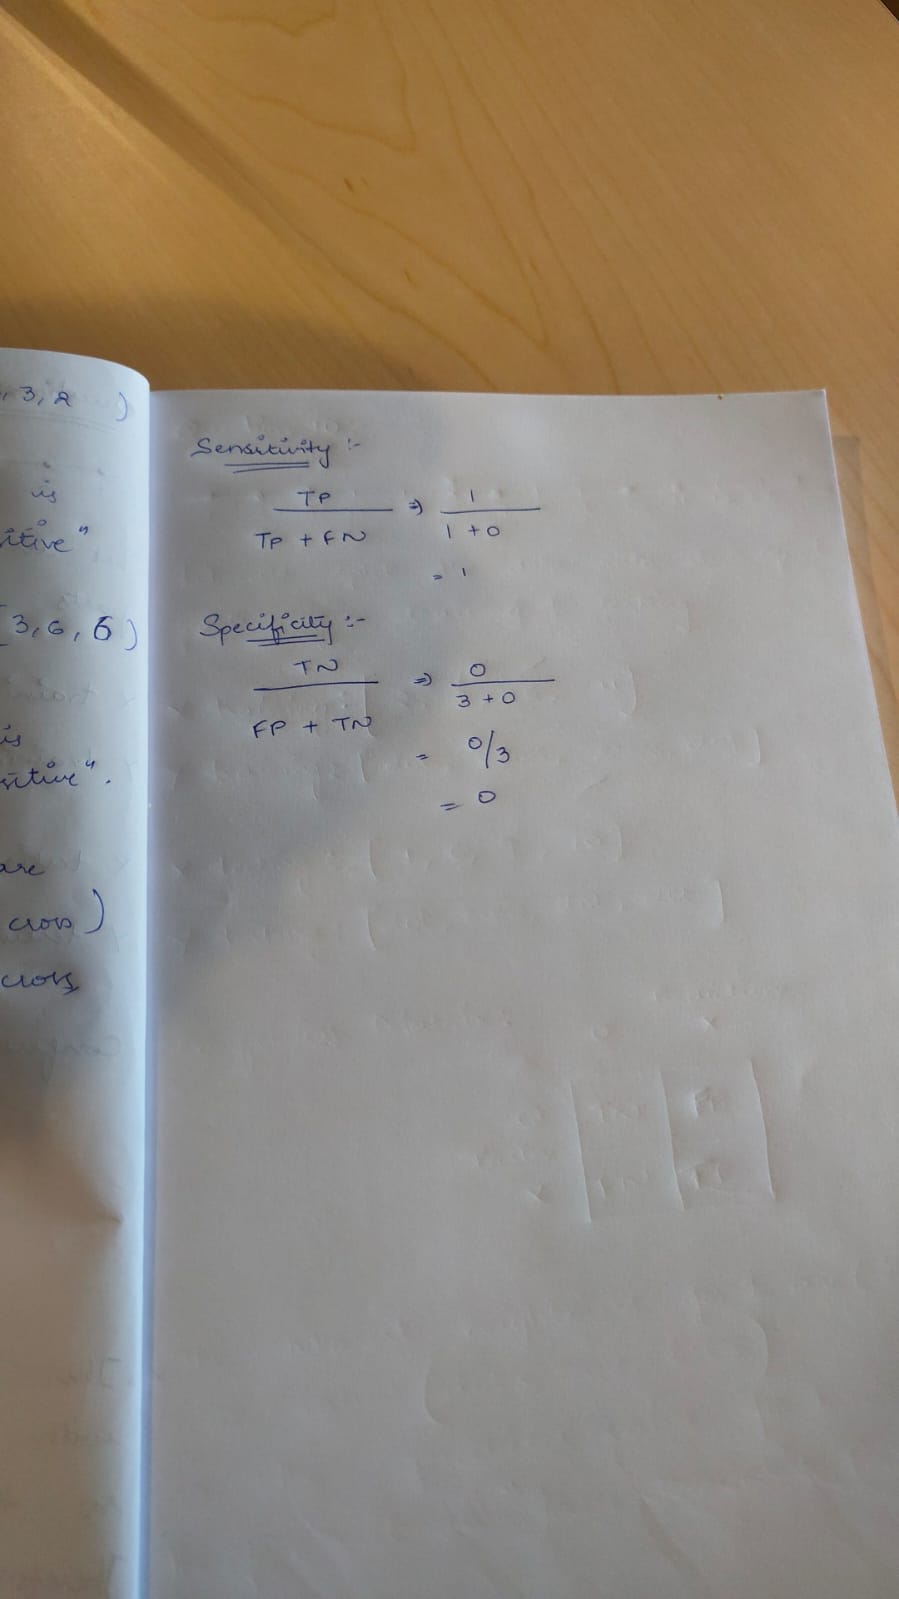 , 3, 2 )
is
itive"
3, 6, 6 )
is
sitive".
are
cross )
cross
Sensitivity :-
TP / TP + FN ⇒ 1 / 1 + 0
= 1
Specificity :-
TN / FP + TN ⇒ 0 / 3 + 0
= 0/3
= 0